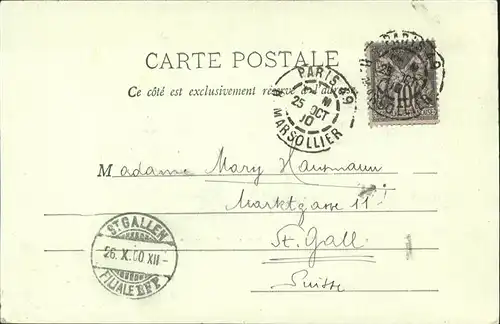 CARTE POSTALE
Ce côté est exclusivement réservé à l'adresse
PARIS 49
25 OCT
R. MARSOLLIER
10
Madame Mary Hausmann
Marktgasse 11
St. Gall
Suisse
ST GALLEN
26. X. 00 XII -
FILIALE BFP